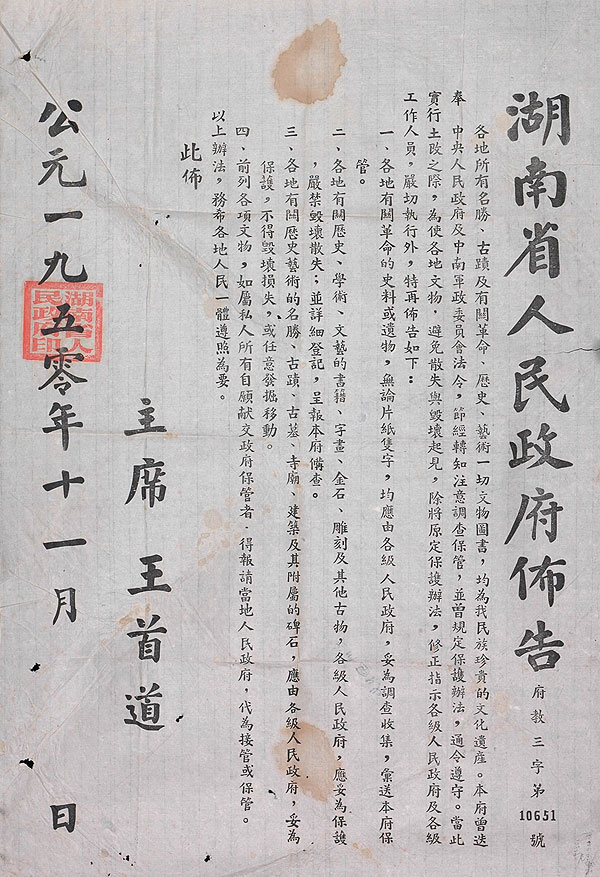 湖南省人民政府佈告
府教三字第10651號
各地所有名勝、古蹟及有關革命、歷史、藝術一切文物圖書，均為我民族珍貴的文化遺產。本府曾迭
奉　中央人民政府及中南軍政委員會法令，節經轉知注意調查保管，並曾規定保護辦法，通令遵守。當此
實行土改之際，為使各地文物，避免散失與毀壞起見，除將原定保護辦法，修正指示各級人民政府及各級
工作人員，嚴切執行外，特再佈告如下：
一、各地有關革命的史料或遺物，無論片紙隻字，均應由各級人民政府，妥為調查收集，彙送本府保
管。
二、各地有關歷史、學術、文藝的書籍、字畫、金石、雕刻及其他古物，各級人民政府，應妥為保護
，嚴禁毀壞散失；並詳細登記，呈報本府備查。
三、各地有關歷史藝術的名勝、古蹟、古墓、寺廟、建築及其附屬的碑石，應由各級人民政府，妥為
保護，不得毀壞損失，或任意發掘移動。
四、前列各項文物，如屬私人所有自願獻交政府保管者，得報請當地人民政府，代為接管或保管。
以上辦法，務布各地人民一體遵照為要。
此佈
主席　王首道
公元一九五零年十一月　日
湖南省人
民政府印